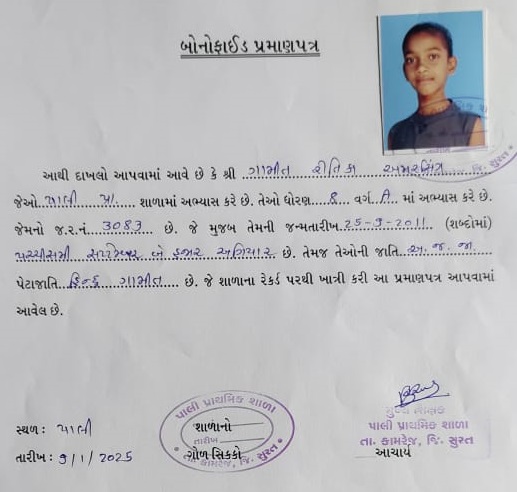 બોનોફાઈડ પ્રમાણપત્ર
આથી દાખલો આપવામાં આવે છે કે શ્રી ગામીત રીતિકા અમરસિંગ
જેઓ પાલી પ્રા. શાળામાં અભ્યાસ કરે છે. તેઓ ધોરણ 8 વર્ગ A માં અભ્યાસ કરે છે.
જેમનો જ.ર.નં. 3083 છે. જે મુજબ તેમની જન્મતારીખ 25-9-2011 (શબ્દોમાં)
પચ્ચીસમી સપ્ટેમ્બર બે હજાર અગિયાર છે. તેમજ તેઓની જાતિ અ.જ.જા.
પેટાજાતિ હિન્દુ ગામીત છે. જે શાળાના રેકર્ડ પરથી ખાત્રી કરી આ પ્રમાણપત્ર આપવામાં
આવેલ છે.
સ્થળ : પાલી
તારીખ : 9/1/2025
પાલી પ્રાથમિક શાળા
શાળાનો
તારીખ
ગોળ સિક્કો
તા. કામરેજ, જિ. સુરત
મુખ્ય શિક્ષક
પાલી પ્રાથમિક શાળા
તા. કામરેજ, જિ. સુરત
આચાર્ય
જિ. સુરત